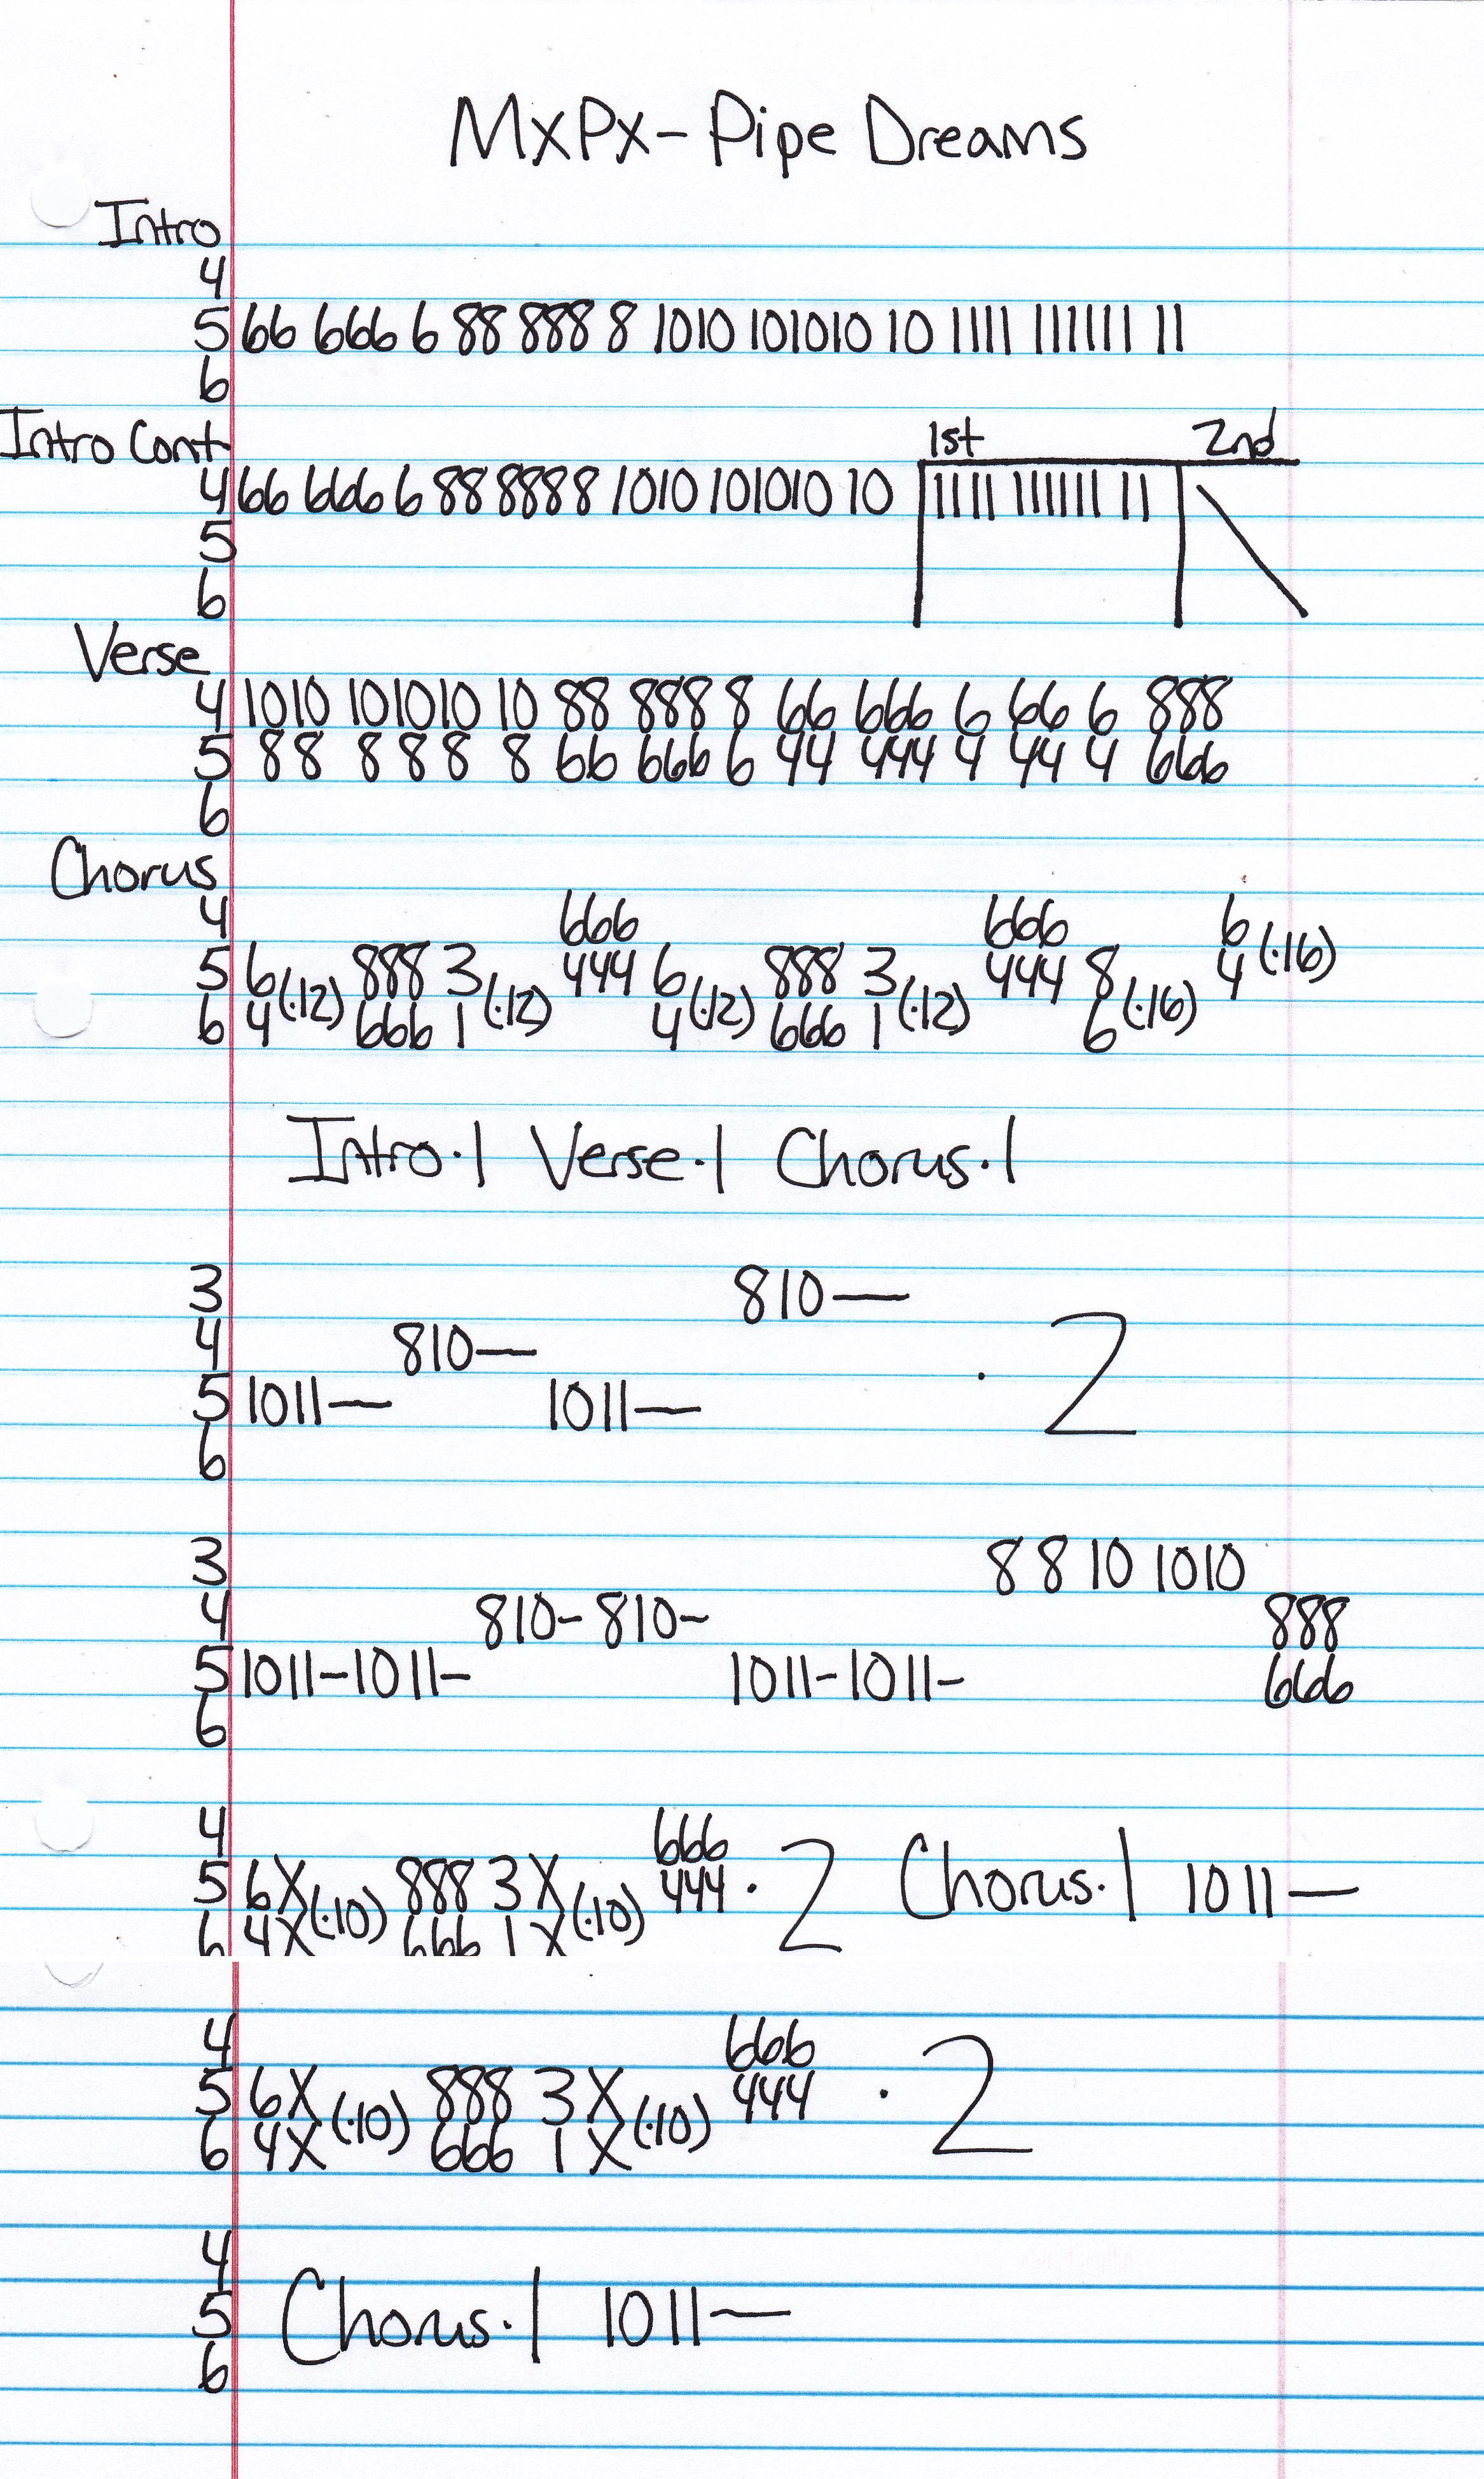 MxPx - Pipe Dreams
Intro
4
5 66 666 6 88 888 8 1010 101010 10 1111 111111 11
6
Intro Cont 1st 2nd
4 66 666 6 88 8888 1010 101010 10 1111 111111 11
5
6
Verse
4 1010 101010 10 88 888 8 66 666 6 66 6 888
5 88 8 8 8 8 66 666 6 44 444 4 44 4 666
6
Chorus
4 666 666 6
5 6 (·12) 888 3 (·12) 444 6 (·12) 888 3 (·12) 444 8 (·16) 4 (·16)
6 4 666 1 4 666 1 6
Intro·1 Verse·1 Chorus·1
3 810—
4 810— · 2
5 1011— 1011—
6
3 8 8 10 1010
4 810- 810- 888
5 1011-1011- 1011-1011- 666
6
4 666
5 6X (·10) 888 3X (·10) 444 · 2 Chorus·1 1011—
6 4X 666 1X
4 666
5 6X (·10) 888 3X (·10) 444 · 2
6 4X 666 1X
4
5 Chorus·1 1011—
6